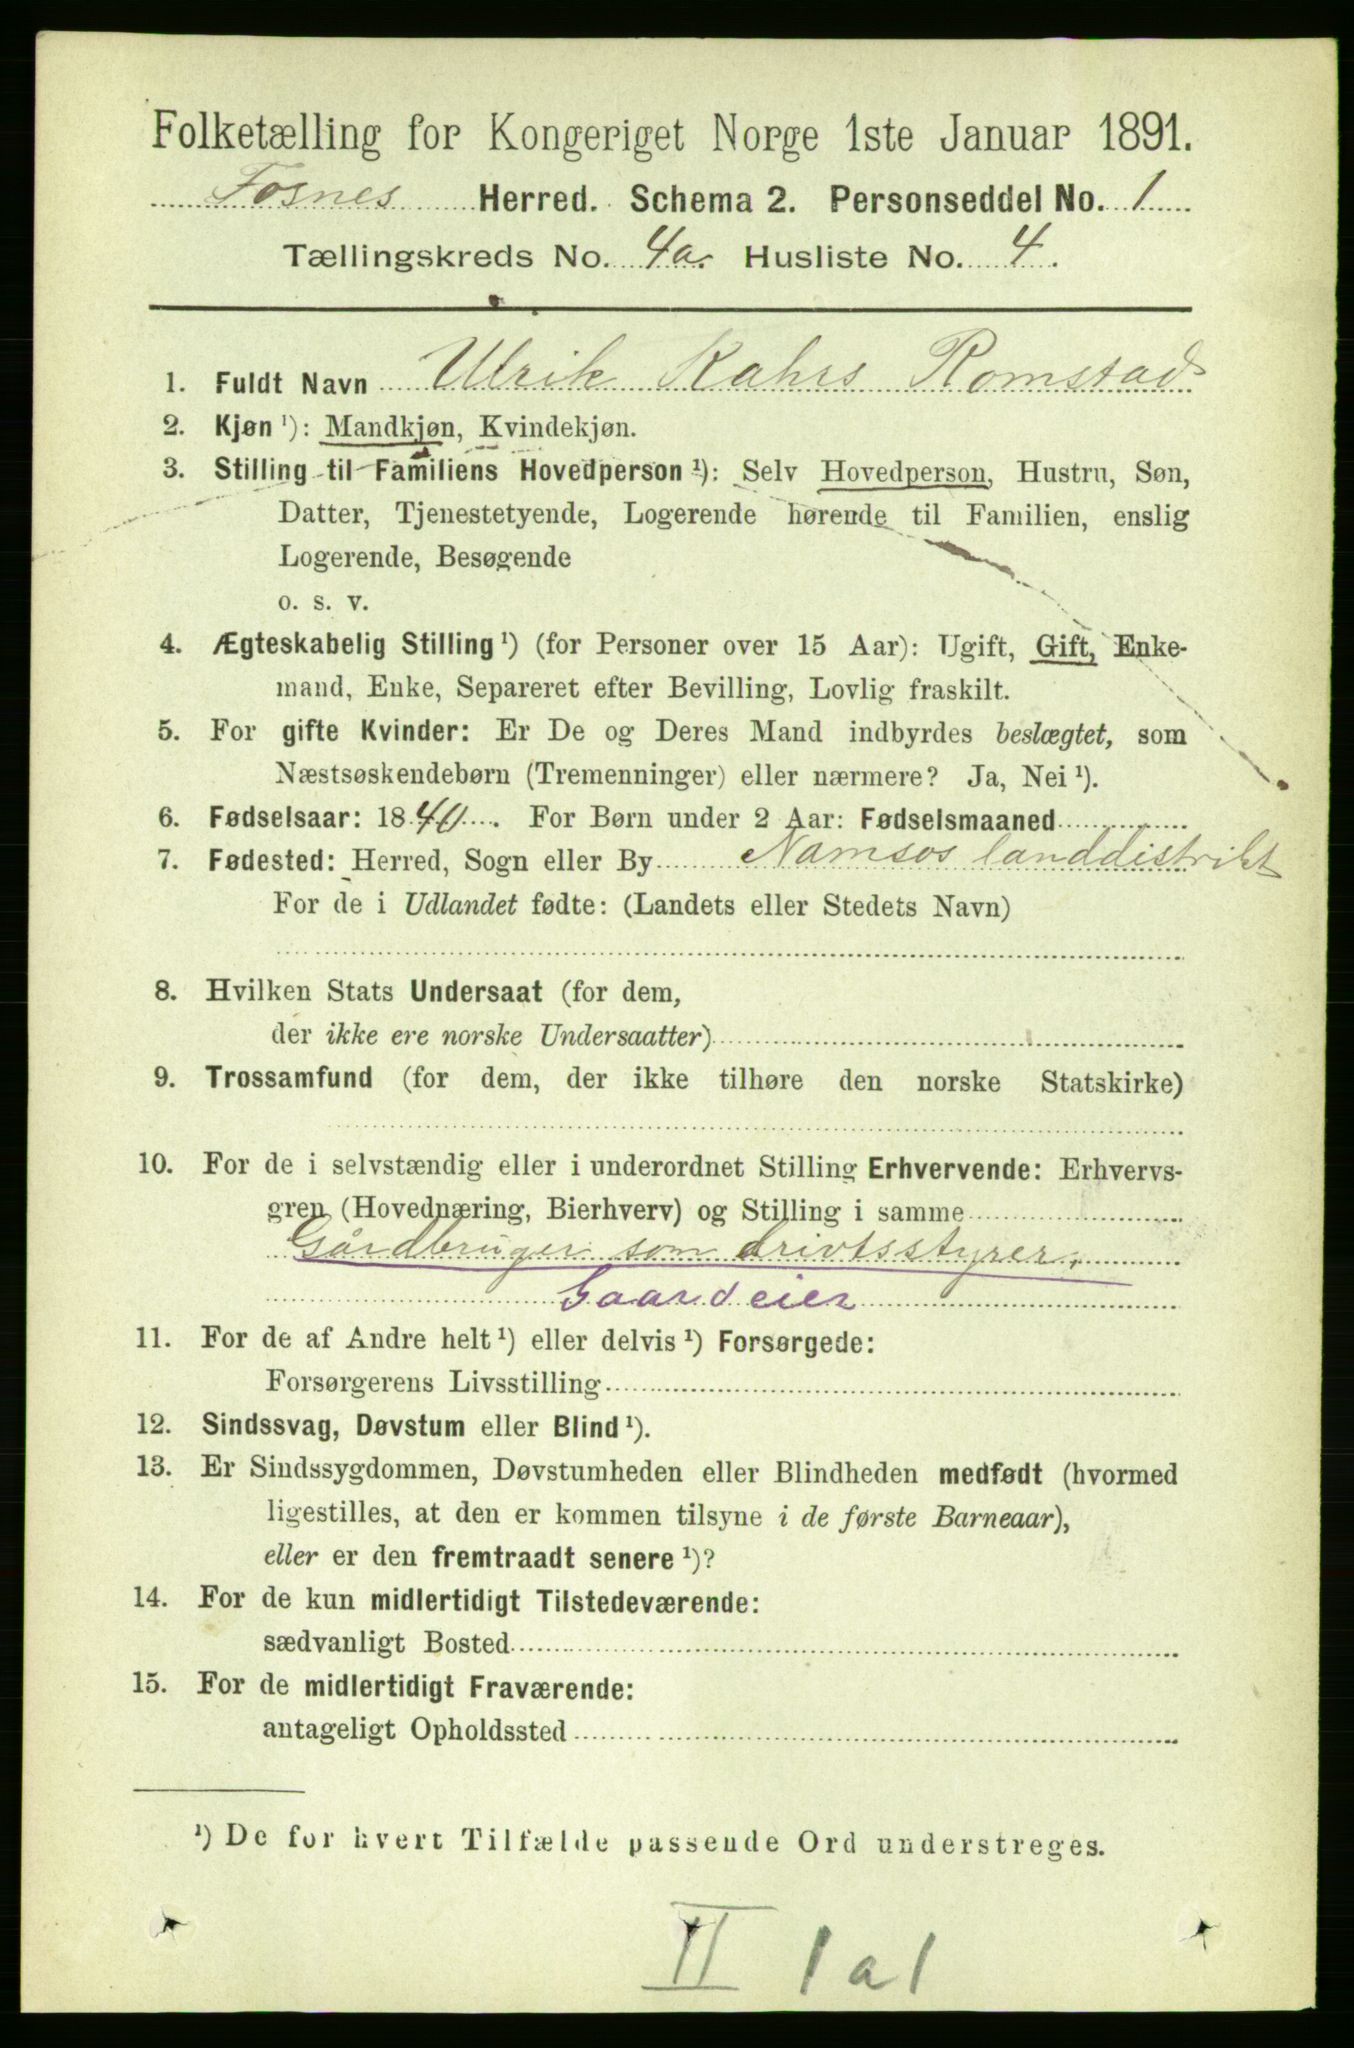 Folketælling for Kongeriget Norge 1ste Januar 1891.
Fosnes Herred. Schema 2. Personseddel No. 1
Tællingskreds No. 4a. Husliste No. 4.
1. Fuldt Navn Ulrik Rahrs Romstad
2. Kjøn ¹): Mandkjøn, Kvindekjøn.
3. Stilling til Familiens Hovedperson ¹): Selv Hovedperson, Hustru, Søn,
Datter, Tjenestetyende, Logerende hørende til Familien, enslig
Logerende, Besøgende
o. s. v.
4. Ægteskabelig Stilling ¹) (for Personer over 15 Aar): Ugift, Gift, Enke-
mand, Enke, Separeret efter Bevilling, Lovlig fraskilt.
5. For gifte Kvinder: Er De og Deres Mand indbyrdes beslægtet, som
Næstsøskendebørn (Tremenninger) eller nærmere? Ja, Nei ¹).
6. Fødselsaar: 1840. For Børn under 2 Aar: Fødselsmaaned
7. Fødested: Herred, Sogn eller By Namsos landdistrikt
For de i Udlandet fødte: (Landets eller Stedets Navn)
8. Hvilken Stats Undersaat (for dem,
der ikke ere norske Undersaatter)
9. Trossamfund (for dem, der ikke tilhøre den norske Statskirke)
10. For de i selvstændig eller i underordnet Stilling Erhvervende: Erhvervs-
gren (Hovednæring, Bierhverv) og Stilling i samme
Gårdbruger som drivtsstyrer.
Gaardeier
11. For de af Andre helt ¹) eller delvis ¹) Forsørgede:
Forsørgerens Livsstilling
12. Sindssvag, Døvstum eller Blind ¹).
13. Er Sindssygdommen, Døvstumheden eller Blindheden medfødt (hvormed
ligestilles, at den er kommen tilsyne i de første Barneaar),
eller er den fremtraadt senere ¹)?
14. For de kun midlertidigt Tilstedeværende:
sædvanligt Bosted
15. For de midlertidigt Fraværende:
antageligt Opholdssted
¹) De for hvert Tilfælde passende Ord understreges.
II 1 a 1